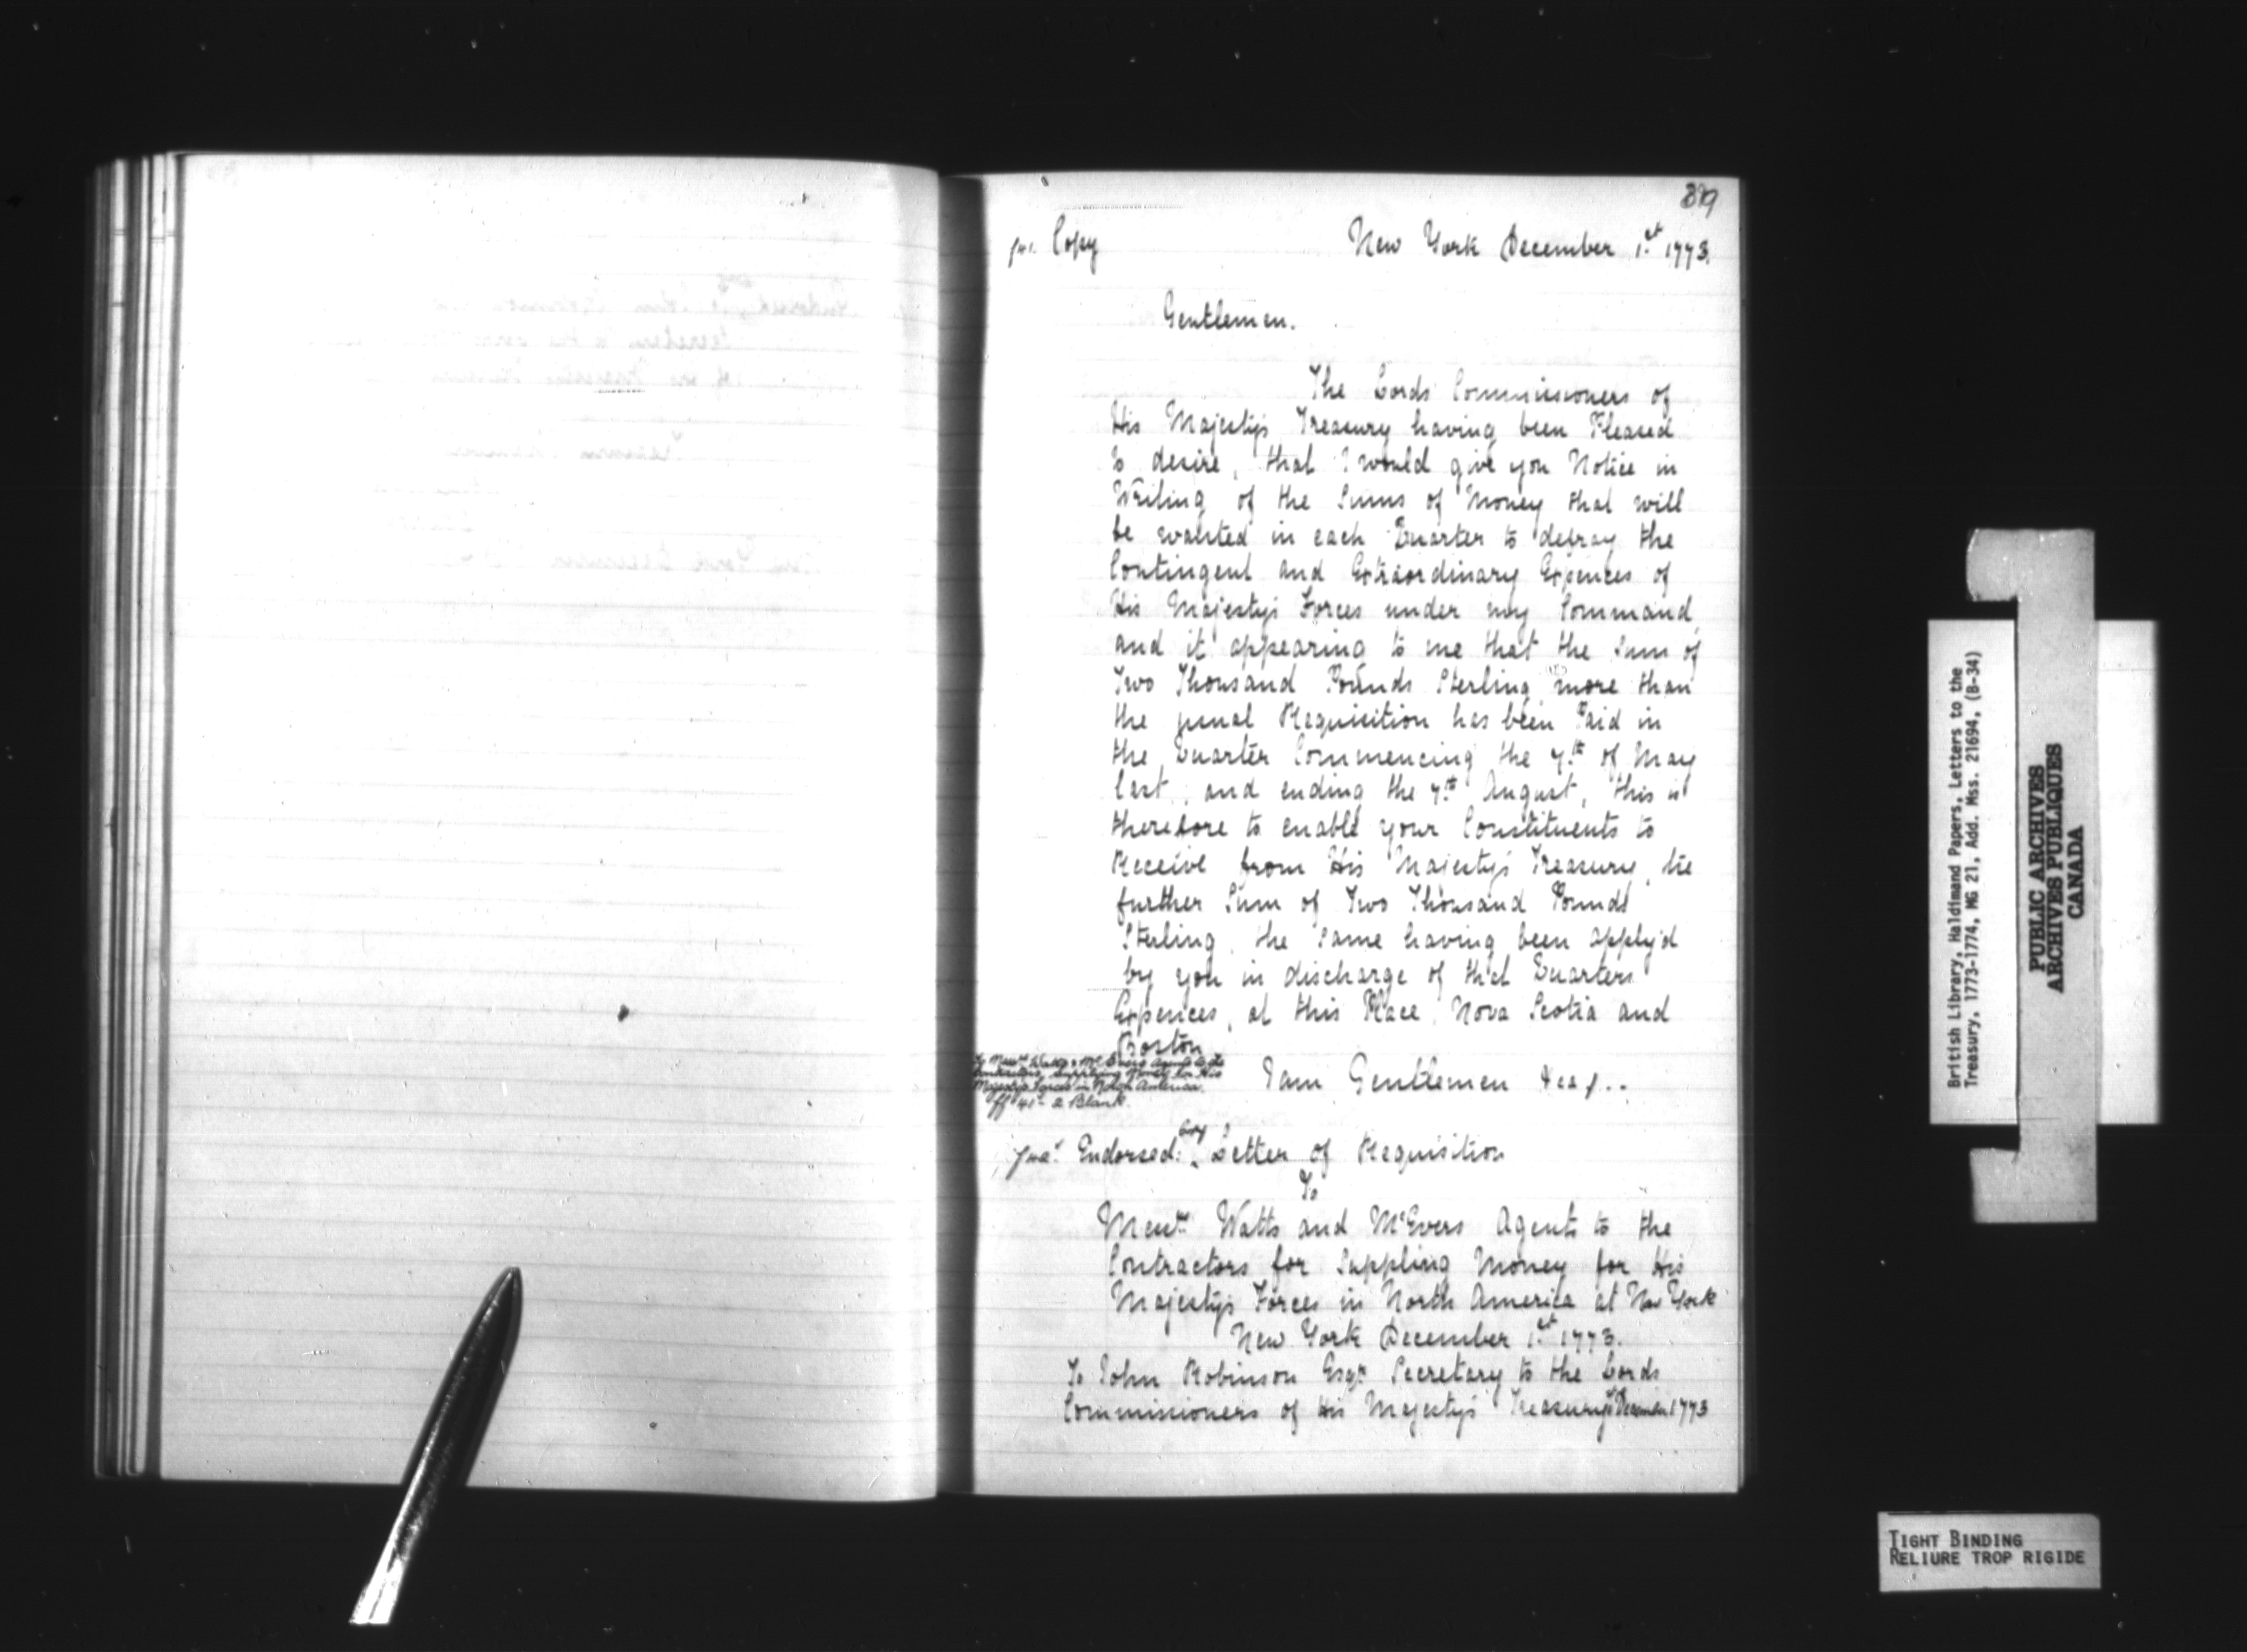 Copy New York December 1st 1773.
Gentlemen.
The Lords Commissioners of
His Majesty's Treasury having been Pleased
to desire, that I would give you Notice in
Writing of the Sums of Money that will
be wanted in each Quarter to defray the
Contingent and Extraordinary Expences of
His Majesty's Forces under my Command,
and it appearing to me that the Sum of
Two Thousand Pounds Sterling more than
the usual Requisition has been Paid in
the Quarter Commencing the 7th of May
last, and ending the 7th August, this is
therefore to enable your Constituents to
Receive from His Majesty's Treasury, the
further Sum of Two Thousand Pounds
Sterling, the same having been apply'd
by you in discharge of that Quarters
Expences, at this Place, Nova Scotia and
Boston
To Messrs Watts & McEvers Agents to the
Contractors, Supplying Money for His
Majesty's Forces in North America.
ff 41 - 2 Blank.
I am Gentlemen
Endorsed: Copy Letter of Requisition
To
Messrs Watts and McEvers Agents to the
Contractors for Suppling Money for His
Majesty's Forces in North America at New York
New York December 1st 1773.
To John Robinson Esqr Secretary to the Lords
Commissioners of His Majesty's Treasury 1773
British Library, Haldimand Papers, Letters to the
Treasury, 1773-1774, MG 21, Add. Mss. 21694, (B-34)
PUBLIC ARCHIVES
ARCHIVES PUBLIQUES
CANADA
TIGHT BINDING
RELIURE TROP RIGIDE